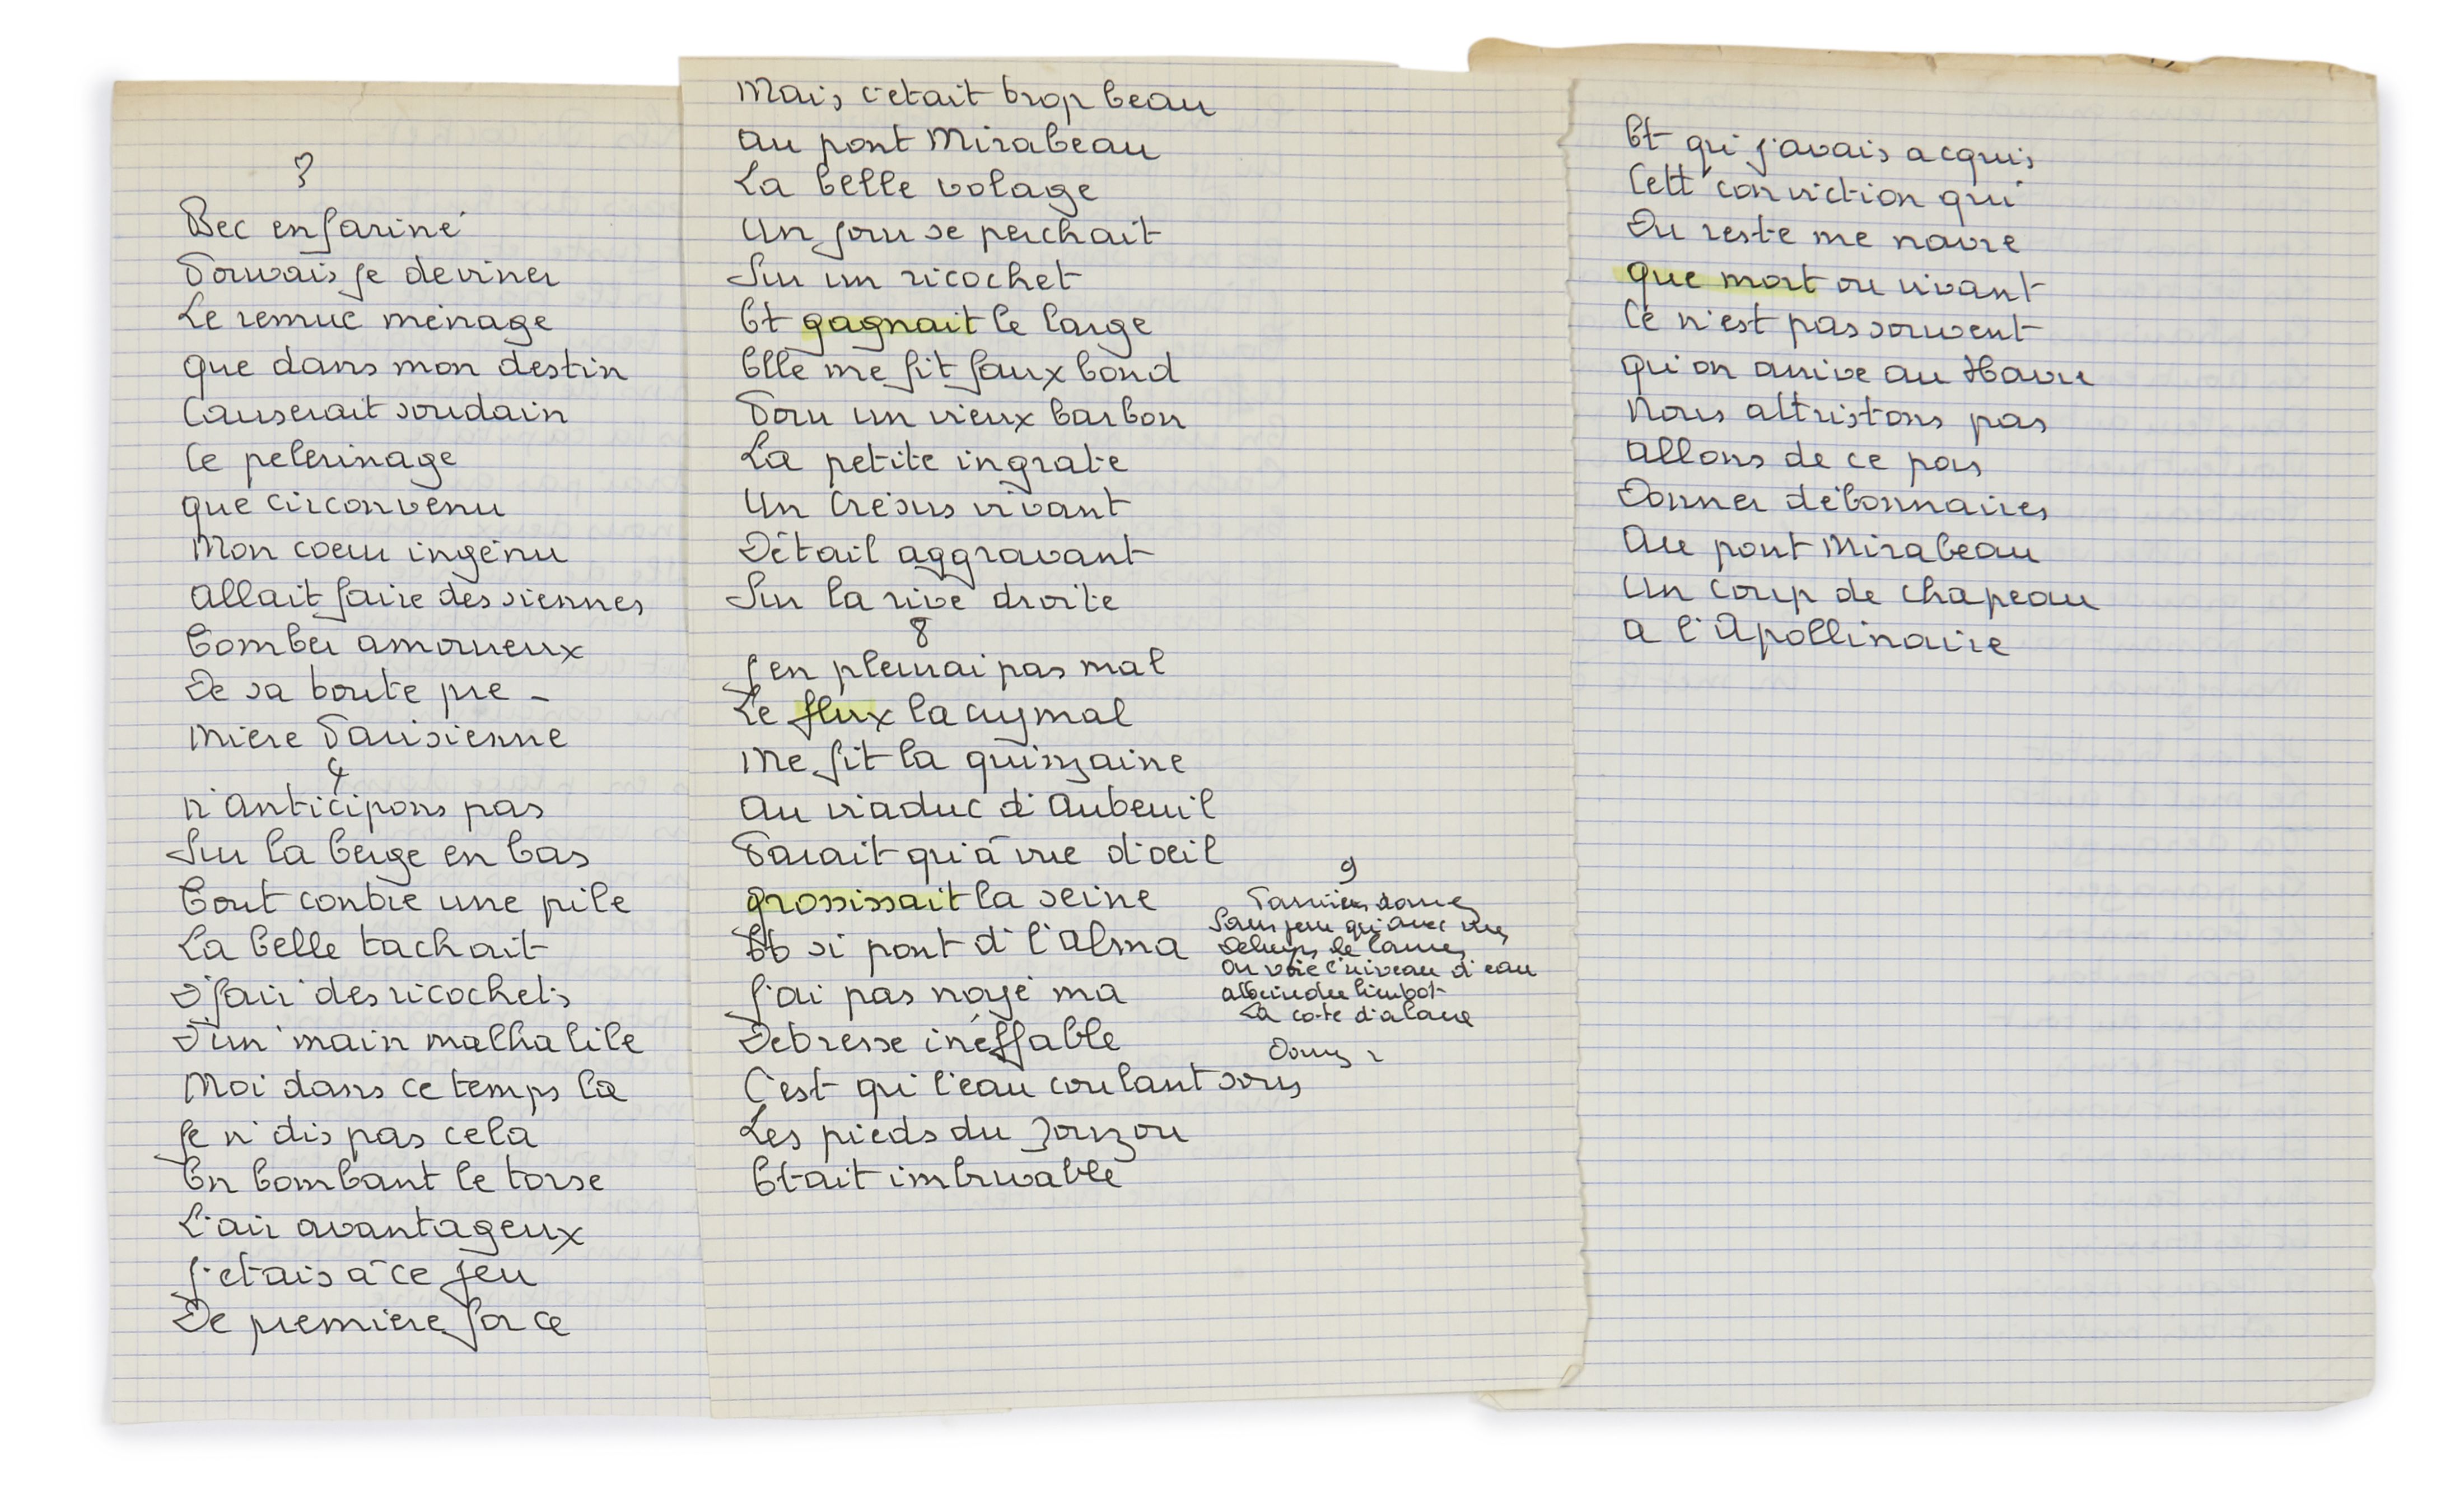 3
Bec enfariné
Pouvais je deviner
Le remue ménage
que dans mon destin
Causerait soudain
Ce pelerinage
que circonvenu
Mon coeur ingénu
allait faire des siennes
Tomber amoureux
De sa toute pre -
mière Parisienne
4
n'anticipons pas
Sur la berge en bas
Tout contre une pile
La belle tachait
D'fair' des ricochets
D'un' main malhabile
Moi dans ce temps la
Je n' dis pas cela
En bombant le torse
L'air avantageux
J'etais à ce jeu
De premiere force
Mais c'etait trop beau
au pont Mirabeau
La belle volage
Un jour se perchait
Sur un ricochet
Et gagnait le large
Elle me fit faux bond
Pour un vieux barbon
La petite ingrate
Un Crésus vivant
Détail aggravant
Sur la rive droite
8
J'en pleurai pas mal
Le flux lacrymal
Me fit la quinzaine
au viaduc d'Auteuil
Parait qu'à vue d'oeil
grossissait la seine
Et si pont d' l'Alma
J'ai pas noyé ma
Detresse inéffable
C'est qu' l'eau coulant sous
Les pieds du Zouzou
Etait imbuvable
9
on voie l'niveau d'eau
La cote d'alarme
Et qu' j'avais acquis
Cett' conviction qui
Du reste me navre
que mort ou vivant
Ce n'est pas souvent
qu'on arrive au Havre
Nous attristons pas
allons de ce pas
Donner débonnaires
Au pont Mirabeau
Un coup de chapeau
a l'Apollinaire